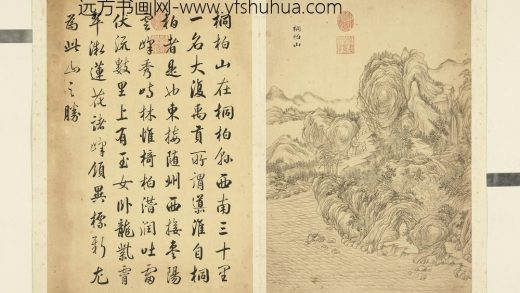 远方书画网: www.yfshuhua.com
桐柏山
桐柏山在桐柏縣西南三十里
一名大復禹貢所謂導淮自桐
柏者是也東接隨州西接棗陽
峯秀峙林惟椅柏潛潤吐雷
伏流數里上有玉女卧龍紫霄
翠微蓮花諸峰領異標新尤
為此山之勝